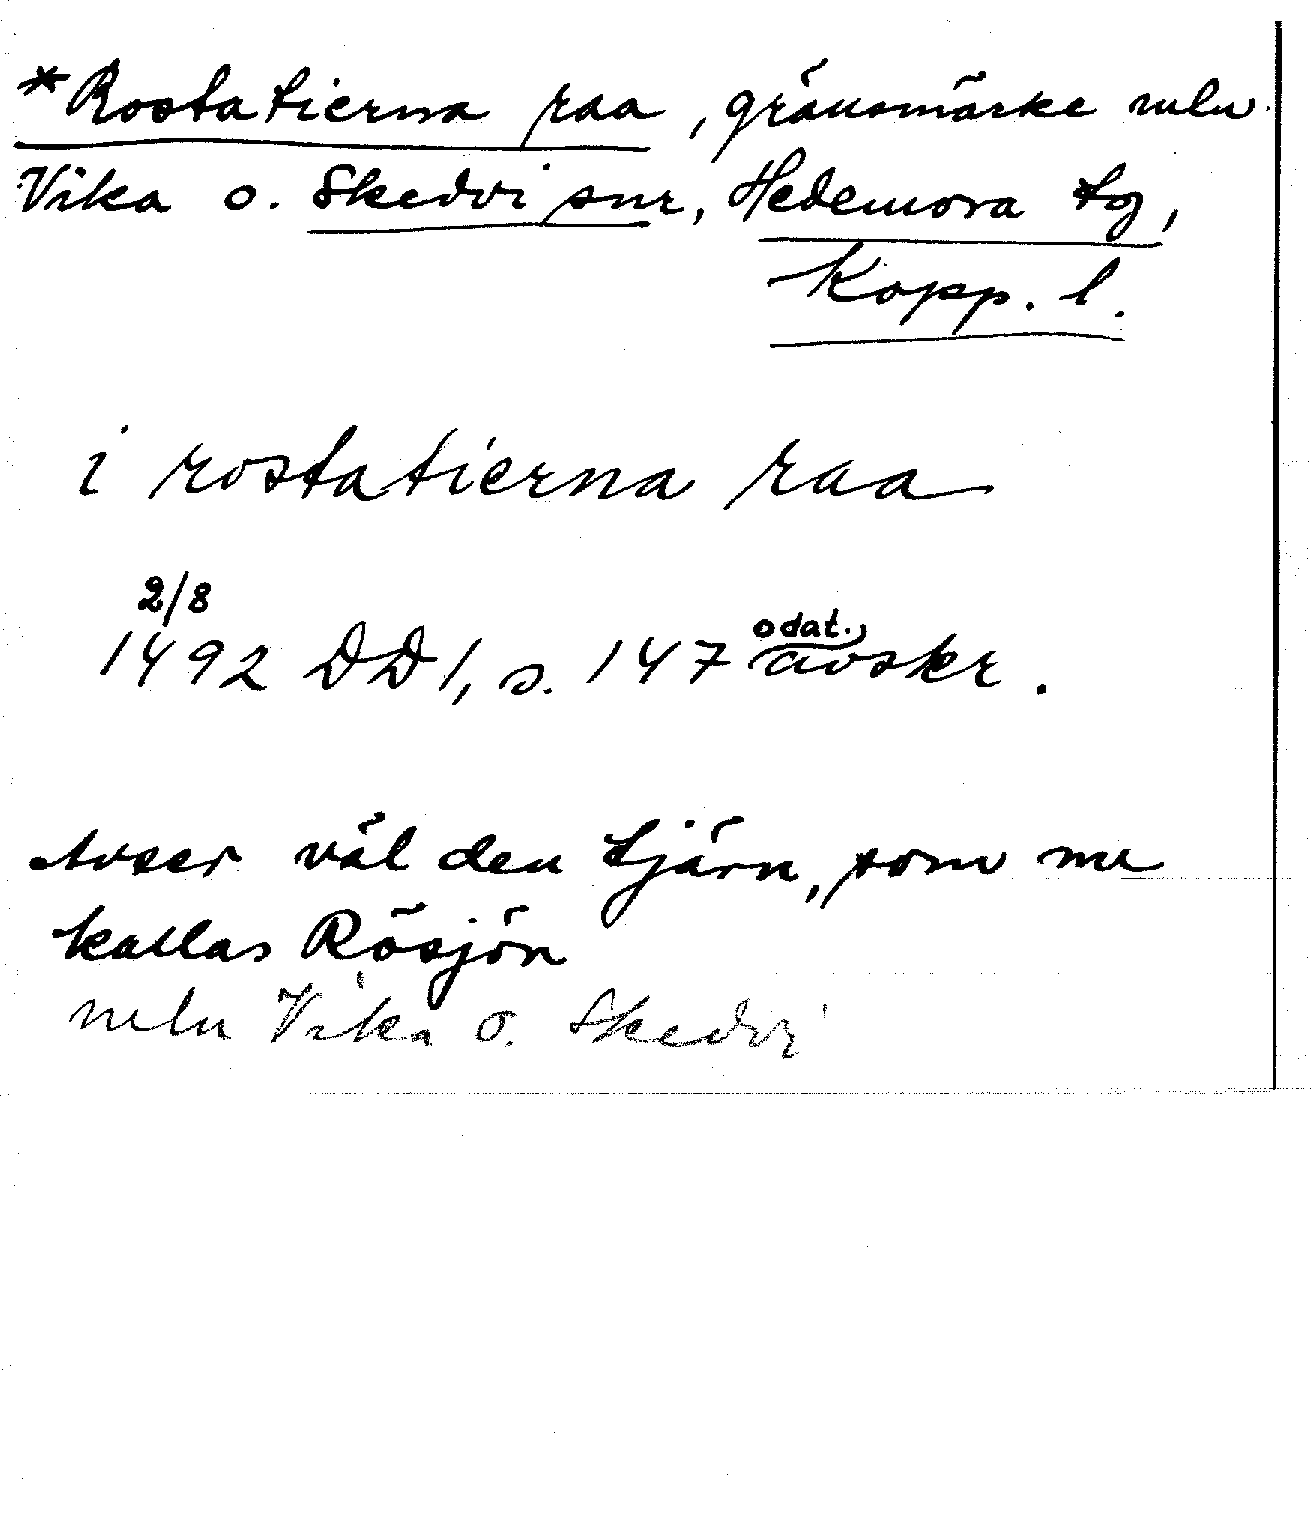 *Rostatierna raa, gränsmärke mln
Vika o. Skedvi snr, Hedemora tg,
Kopp. l.
i rostatierna raa
2/8
1492 DD 1, s. 147 odat. avskr.
Avser väl den tjärn, som nu
kallas Rösjön
mln Vika o. Skedvi